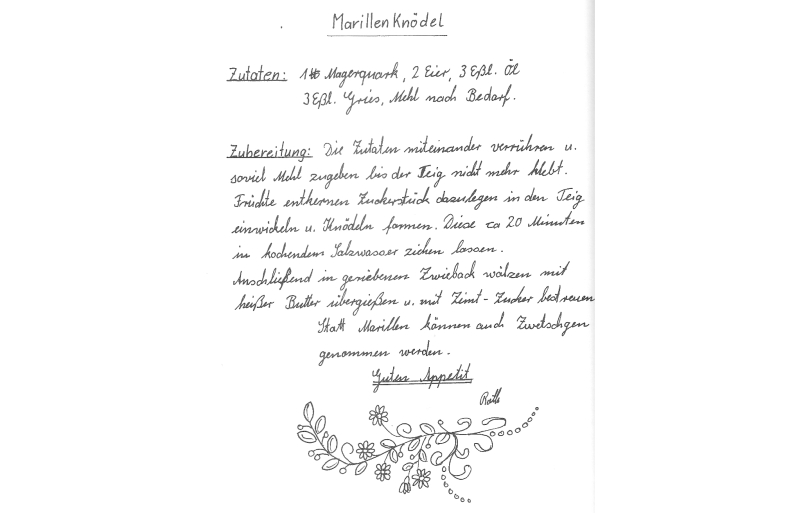 MarillenKnödel
Zutaten: 1 ℔ Magerquark, 2 Eier, 3 Eßl. Öl
3 Eßl. Gries, Mehl nach Bedarf.
Zubereitung: Die Zutaten miteinander verrühren u.
soviel Mehl zugeben bis der Teig nicht mehr klebt.
Früchte entkernen Zuckerstück dazulegen in den Teig
einwickeln u. Knödeln formen. Diese ca 20 Minuten
in kochendem Salzwasser ziehen lassen.
Anschließend in geriebenen Zwieback wälzen mit
heißer Butter übergießen u. mit Zimt-Zucker bestreuen
Statt Marillen können auch Zwetschgen
genommen werden.
Guten Appetit